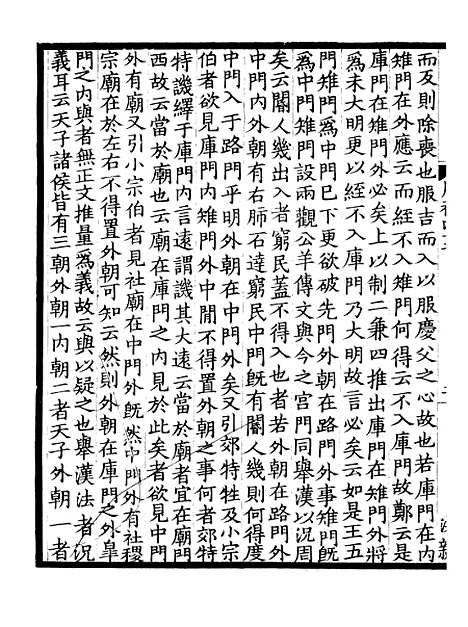 而反則除喪也服吉而入以服慶父之心故也若庫門在内
雉門在外應云而經不入雉門何得云不入庫門故鄭云是
庫門在雉門外必矣上以制二兼四推出庫門在雉門外將
爲未大明更以絰不入庫門乃大明故言必矣云如是王五
門雉門爲中門巳下更欲破先鄭外朝在路門外事雉門旣
爲中門雉門設兩觀公羊傳文與今之宮門同舉漢以況周
矣云閽人幾出入者窮民蓋不得入也者若外朝在路門外
中門内外朝有右肺石逹窮民中門旣有閽人幾則何得度
中門入于路門乎明外朝在中門外矣又引郊特牲及小宗
伯者欲見庫門内雉門外中閒不得置外朝之事何者郊特
特譏繹于庫門内言遠謂譏其大遠云當於廟者宜在廟門
西故云當於廟也云廟在庫門之内見於此矣者欲見中門
外有廟又引小宗伯者見社廟在中門外旣然中門外有社稷
宗廟在於左右不得置外朝可知云然則外朝在庫門之外臯
門之内與者無正文推量爲義故云與以疑之也舉漢法者況
義耳云天子諸侯皆有三朝外朝一内朝二者天子外朝一者